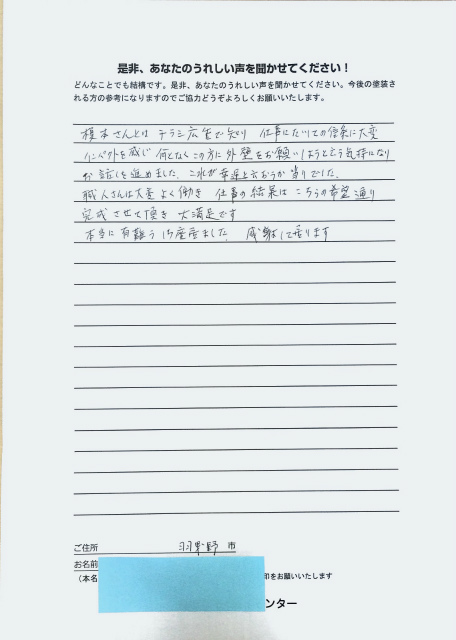 是非、あなたのうれしい声を聞かせてください！
どんなことでも結構です。是非、あなたのうれしい声を聞かせてください。今後の塗装さ
れる方の参考になりますのでご協力どうぞよろしくお願いいたします。
榎本さんとは チラシ広告で知り 仕事にたいての信条に大変
インパクトを感じ 何となくこの方に外壁をお願いしようと言う気持になり
お話しを進めました、これが幸運と云おうか当りでした。
職人さんは大変よく働き 仕事の結果は こちらの希望通り
完成させて頂き 大満足です
本当に有難う御座居ました、感謝して居ります
ご住所 羽曳野 市
お名前
（本名 印をお願いいたします
ンター